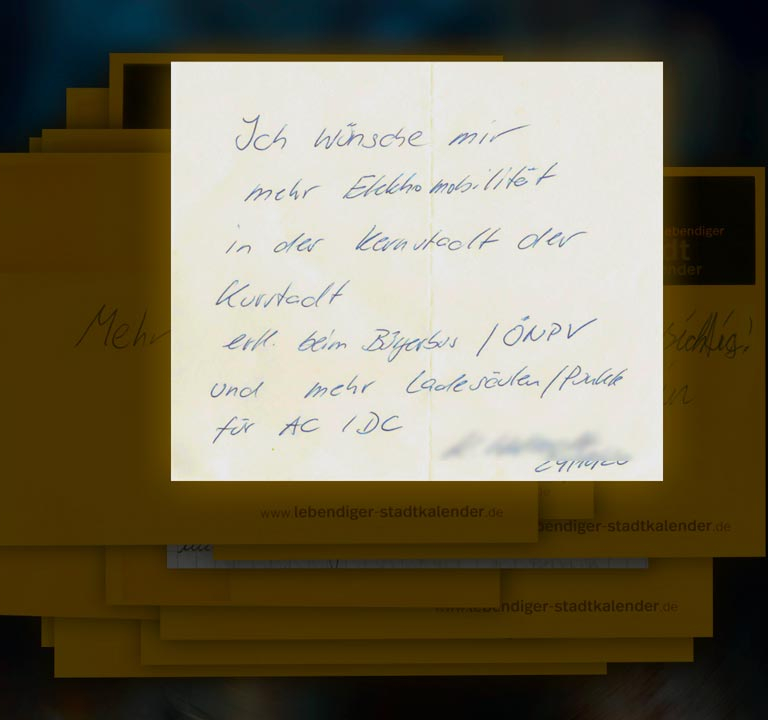 Ich Wünsche mir
mehr Elektromobilität
in der Kernstadt der
Kurstadt
evtl. beim Bürgerbus / ÖNPV
und mehr Ladesäulen/Punkte
für AC / DC
Mehr
lebendiger
dt
nder
www.lebendiger-stadtkalender.de
bendiger-stadtkalender.de
www.lebendiger-stadtkalender.de